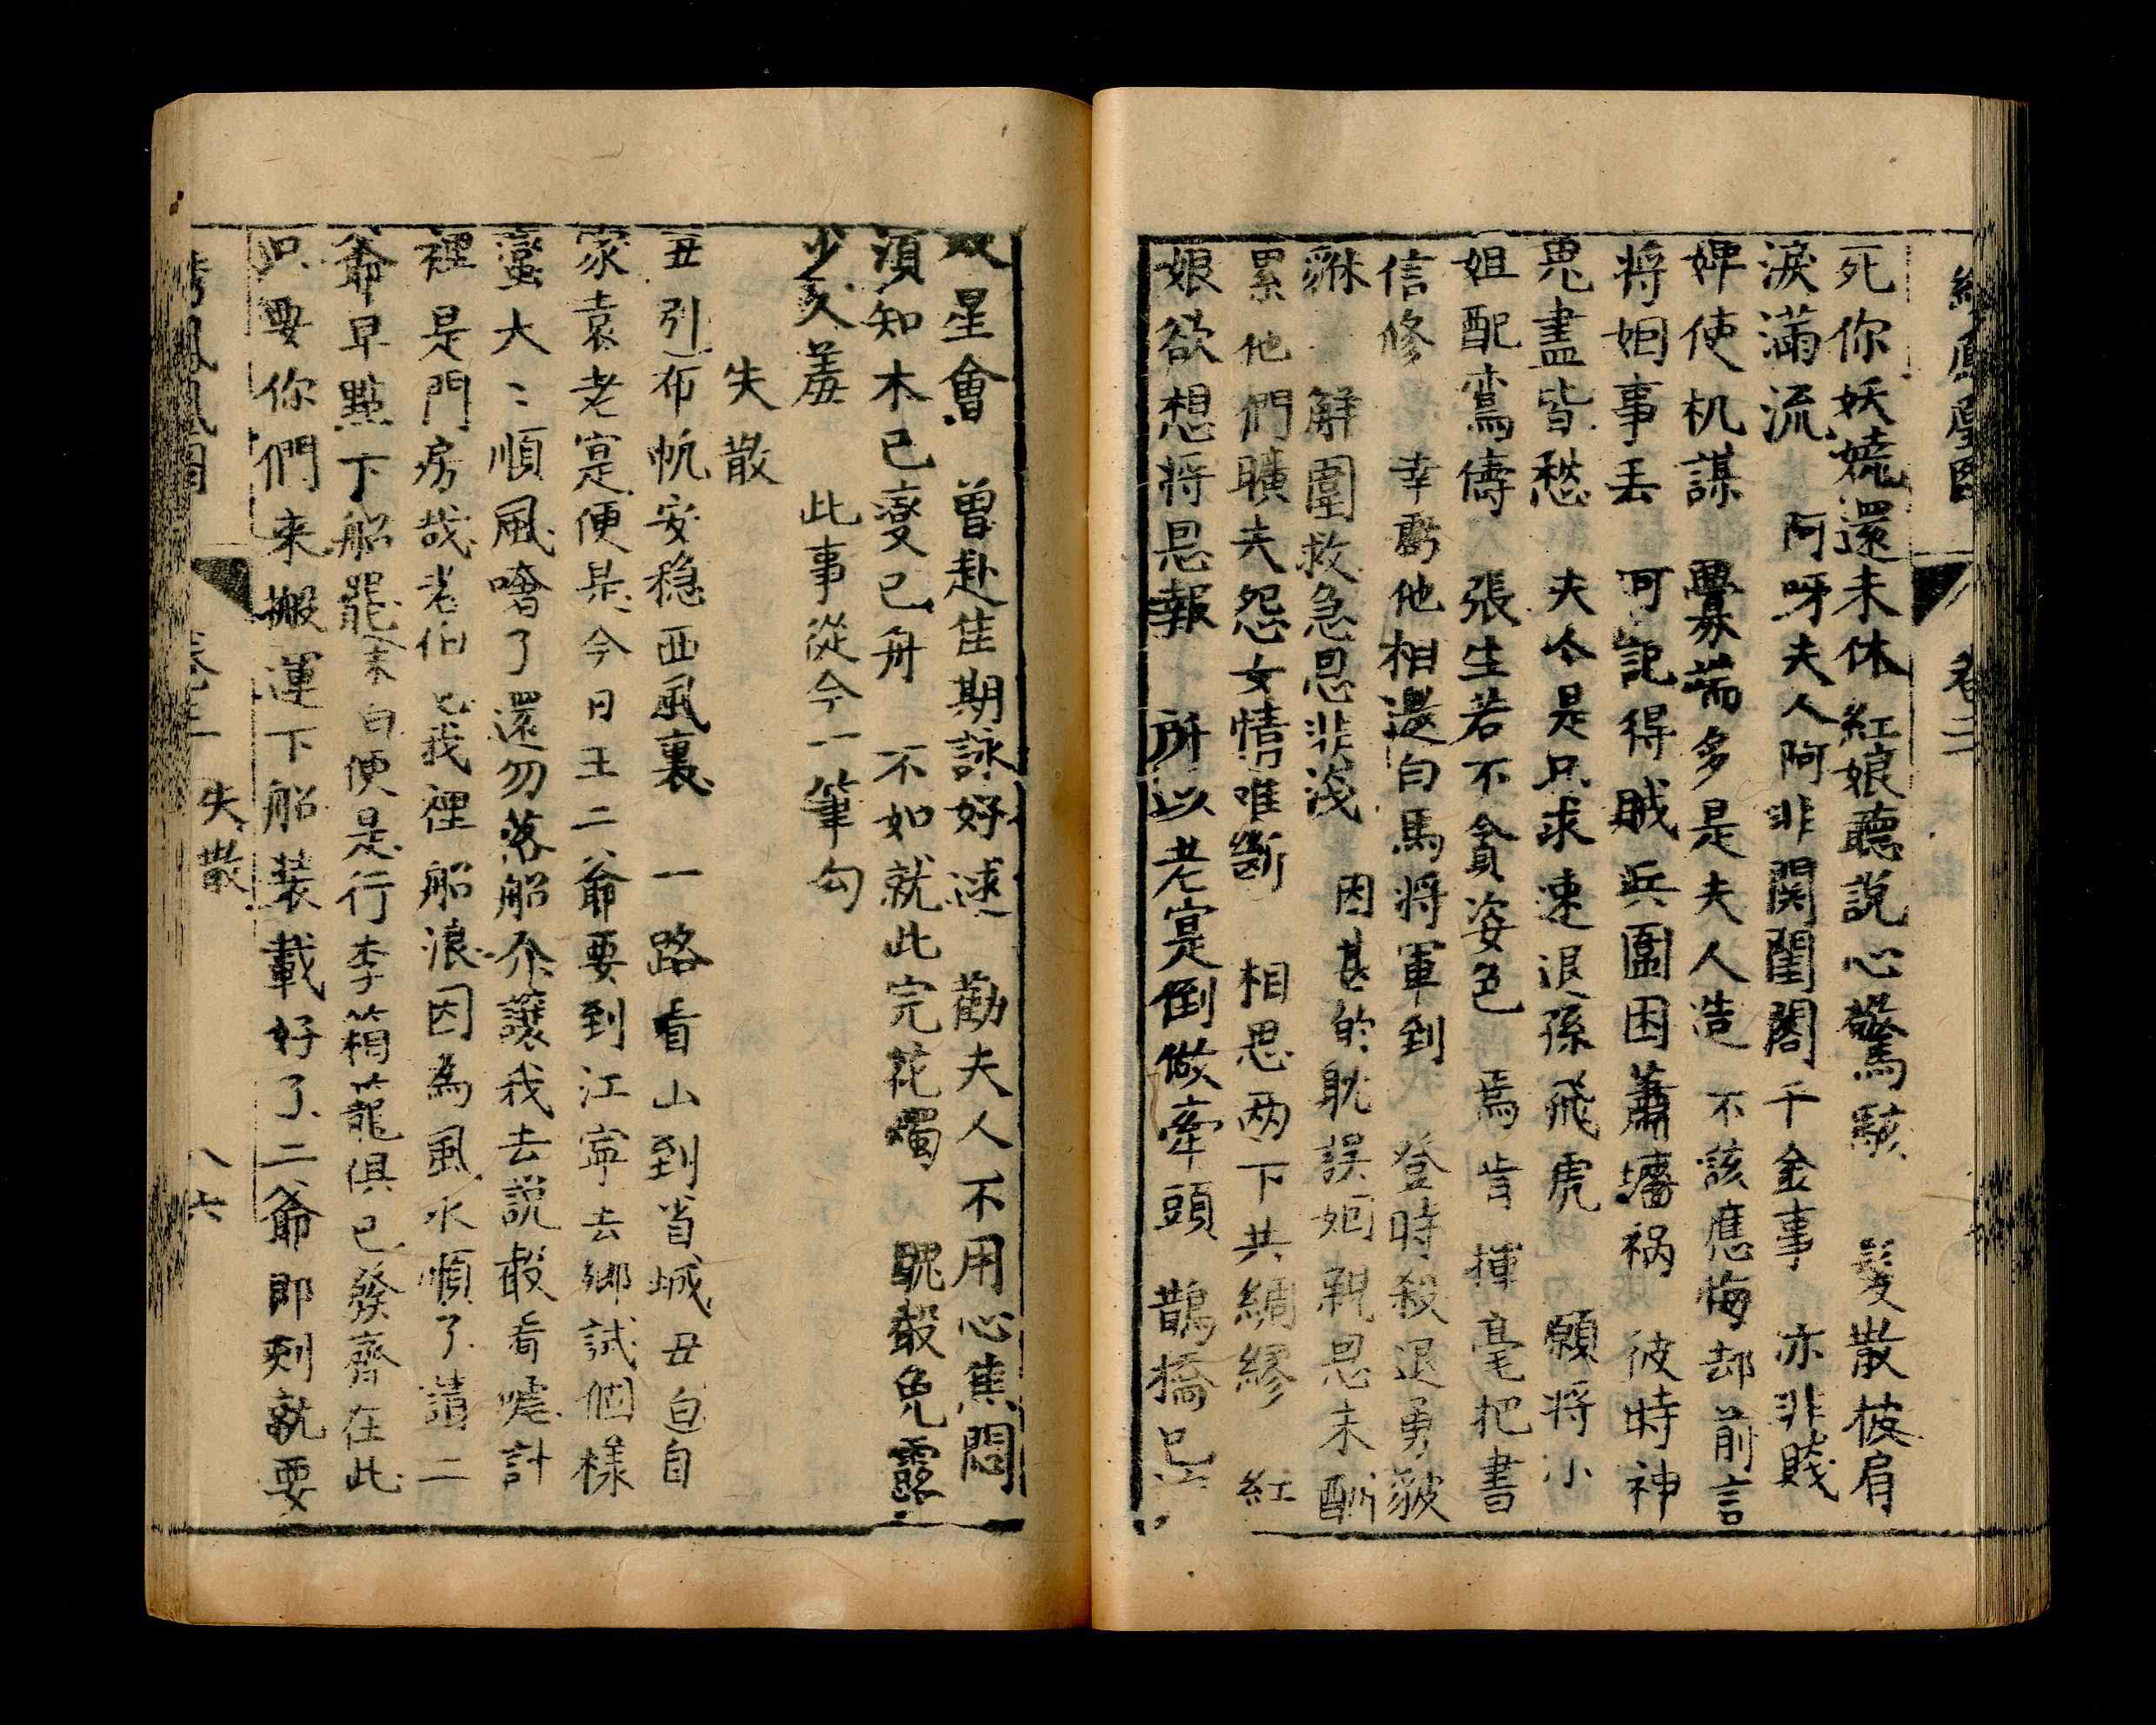 卷二
死你妖嬈還未休 紅娘聽說心驚駭 髮散披肩
淚滿流 阿呀夫人阿非関閨閣千金事 亦非賤
婢使机謀 釁端多是夫人造 不該應悔却前言
將姻事丢 可記得賊兵圍困蕭墻祸 彼時神
鬼盡皆愁 夫人是只求速退孫飛虎 願將小
姐配鸞儔 張生若不貪姿色 焉肯揮毫把書
信修 幸虧他相邀白馬將軍到 登時殺退勇貔
貅 解圍救急恩非淺 因甚的躭誤姻親恩未酬
累他們曠夫怨女情难断 相思两下共綢繆 紅
娘欲想將恩報 所以老寔倒做牽頭 鵲橋已
双星會 曾赴佳期詠好逑 勸夫人不用心焦悶
須知木已變已舟 不如就此完花燭 覥觳免露
少久羞 此事從今一筆勾
失散
丑引布帆安穏西風裏 一路看山到省城丑白自
家袁老寔便是今日王二爺要到江寧去鄉試個樣
蠻大〻順風嗆了還勿落船介讓我去説觳看嘘計
裡是門房哉老伯兄我裡船浪因為風水順了請二
爺早點下船罷末白便是行李箱籠俱已發齊在此
只要你們来搬運下船装載好了二爺即刻就要
失散
八六